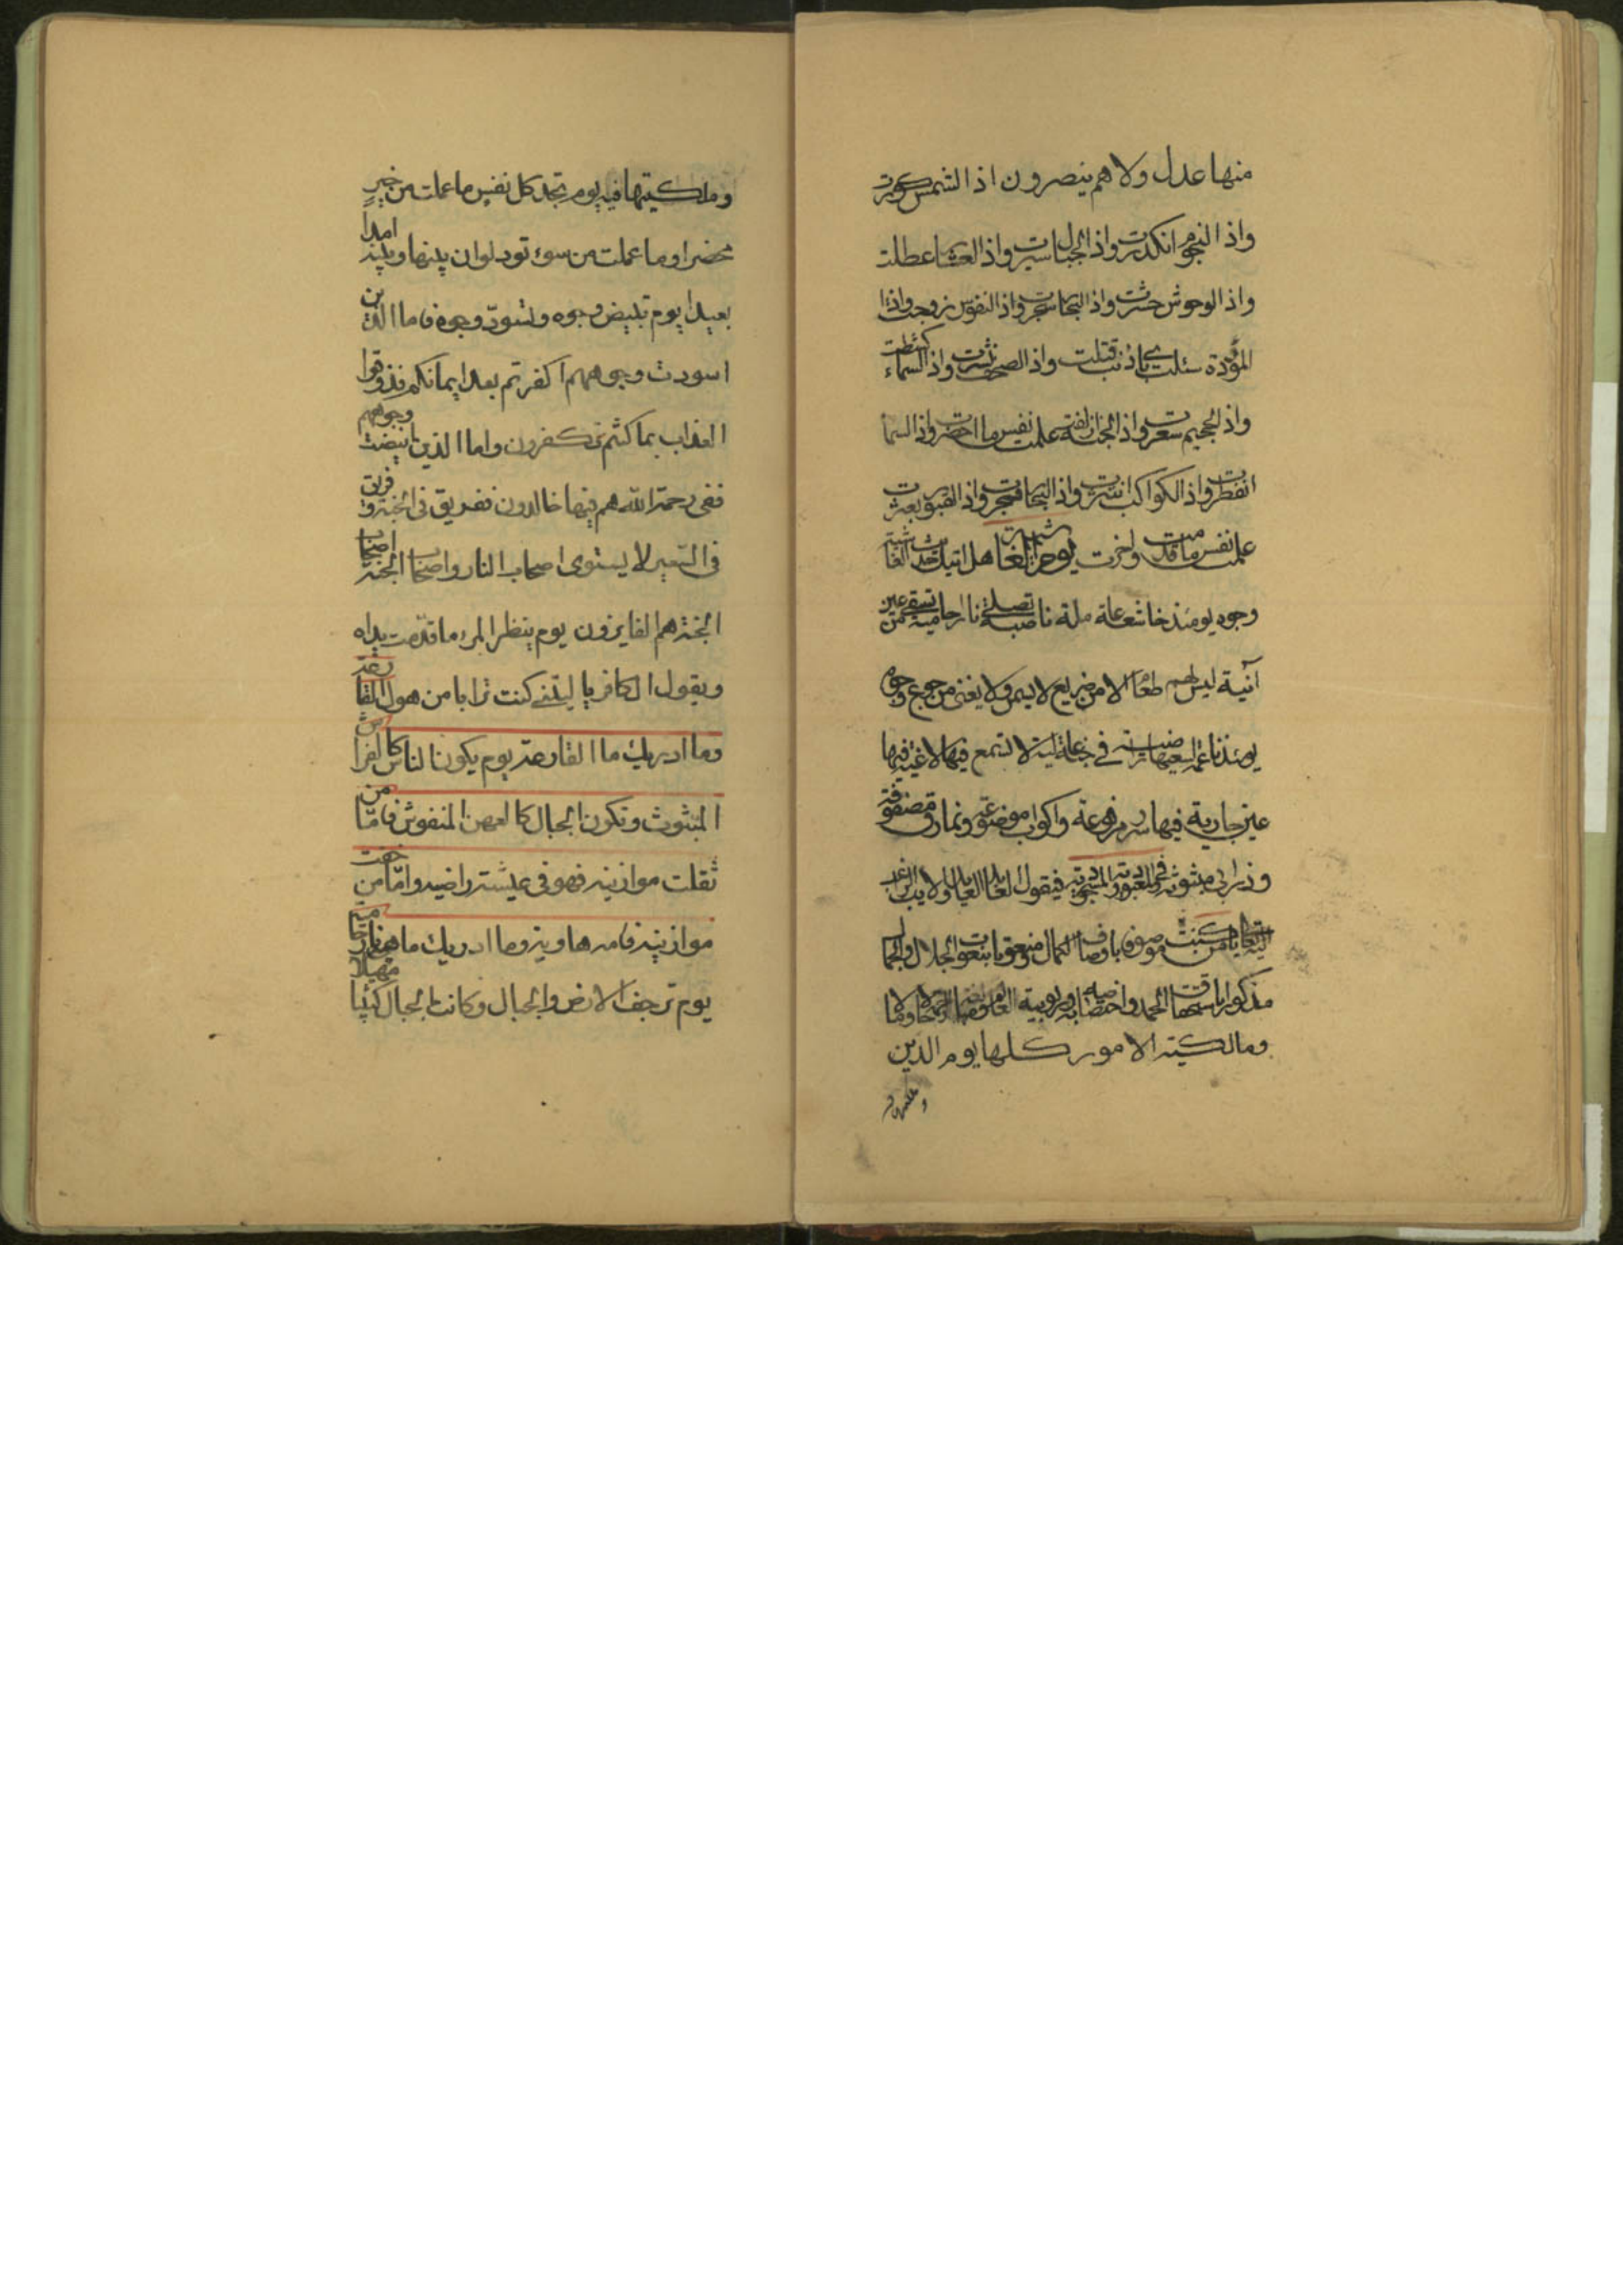 منها عدل ولا هم ينصرون اذا الشمس كورت
واذا النجوم انكدرت واذا الجبال سيرت واذا العشار عطلت
واذا الوحوش حشرت واذا البحار سجرت واذا النفوس زوجت واذا
المؤدة سئلت باي ذنب قتلت واذا الصحف نشرت واذا السماء كشطت
واذا الجحيم سعرت واذا الجنة ازلفت علمت نفس ما احضرت واذا السماء
انفطرت واذا الكواكب انتثرت واذا البحار فجرت واذا القبور بعثرت
علمت نفس ما قدمت واخرت هل اتيك حديث الغاشية
وجوه يومئذ خاشعة عاملة ناصبة تصلى نارا حامية تسقى من عين
آنية ليس لهم طعام الا من ضريع لا يسمن ولا يغني من جوع وجوه
يومئذ ناعمة لسعيها راضية في جنة عالية لا تسمع فيها لاغية فيها
عين جارية فيها سرر مرفوعة واكواب موضوعة ونمارق مصفوفة
وزرابي مبثوثة فيقول
كنت موصوف باوصاف الكمال ومنعوتا بنعوت الجلال والجمال
مذكورا
ومالكيته الامور كلها يوم الدين
وملكيتها فيه يوم تجد كل نفس ما عملت من خير
محضرا وما عملت من سوء تود لو ان بينها وبينه امدا
بعيدا يوم تبيض وجوه وتسود وجوه فاما الذين
اسودت وجوههم اكفرتم بعد ايمانكم فذوقوا
العذاب بما كنتم تكفرون واما الذين ابيضت وجوههم
ففي رحمة الله هم فيها خالدون ففريق في الجنة وفريق
في السعير لا يستوى اصحاب النار واصحاب الجنة اصحاب
الجنة هم الفايزون يوم ينظر المرء ما قدمت يداه
ويقول الكافر يا ليتني كنت ترابا من هول القارعة
وما ادريك ما القارعة يوم يكون الناس كالفراش
المبثوث وتكون الجبال كالعهن المنفوش فاما من
ثقلت موازينه فهو في عيشة راضية واما من خفت
موازينه فامه هاوية وما ادريك ماهيه نار حامية
يوم ترجف الارض والجبال وكانت الجبال كثيبا مهيلا